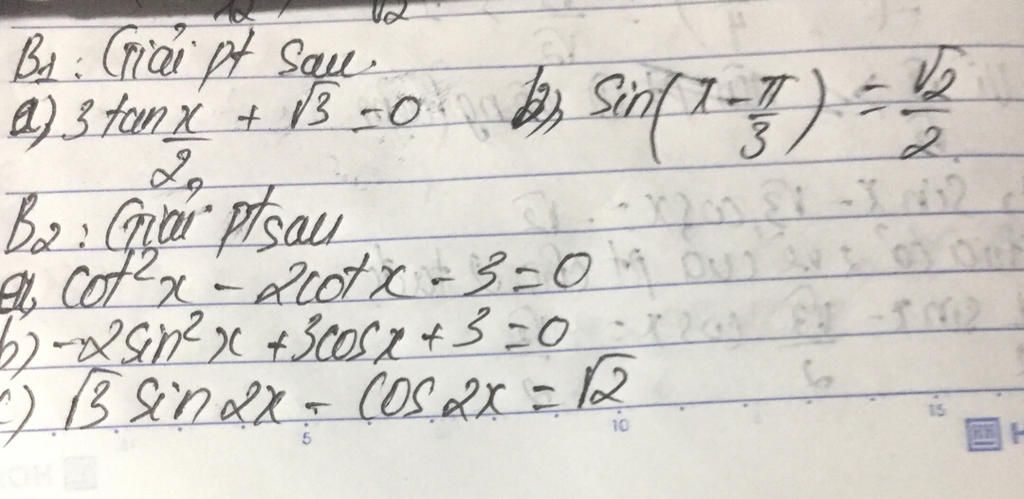 12 √2
B1: Giải pt sau.
a) 3 tan x/2 + √3 = 0 b) Sin(x - π/3) = √2/2
B2: Giải pt sau
a, cot²x - 2cotx - 3 = 0
b) -2sin²x + 3cosx + 3 = 0
c) √3 sin 2x - cos 2x = √2
5 10 15